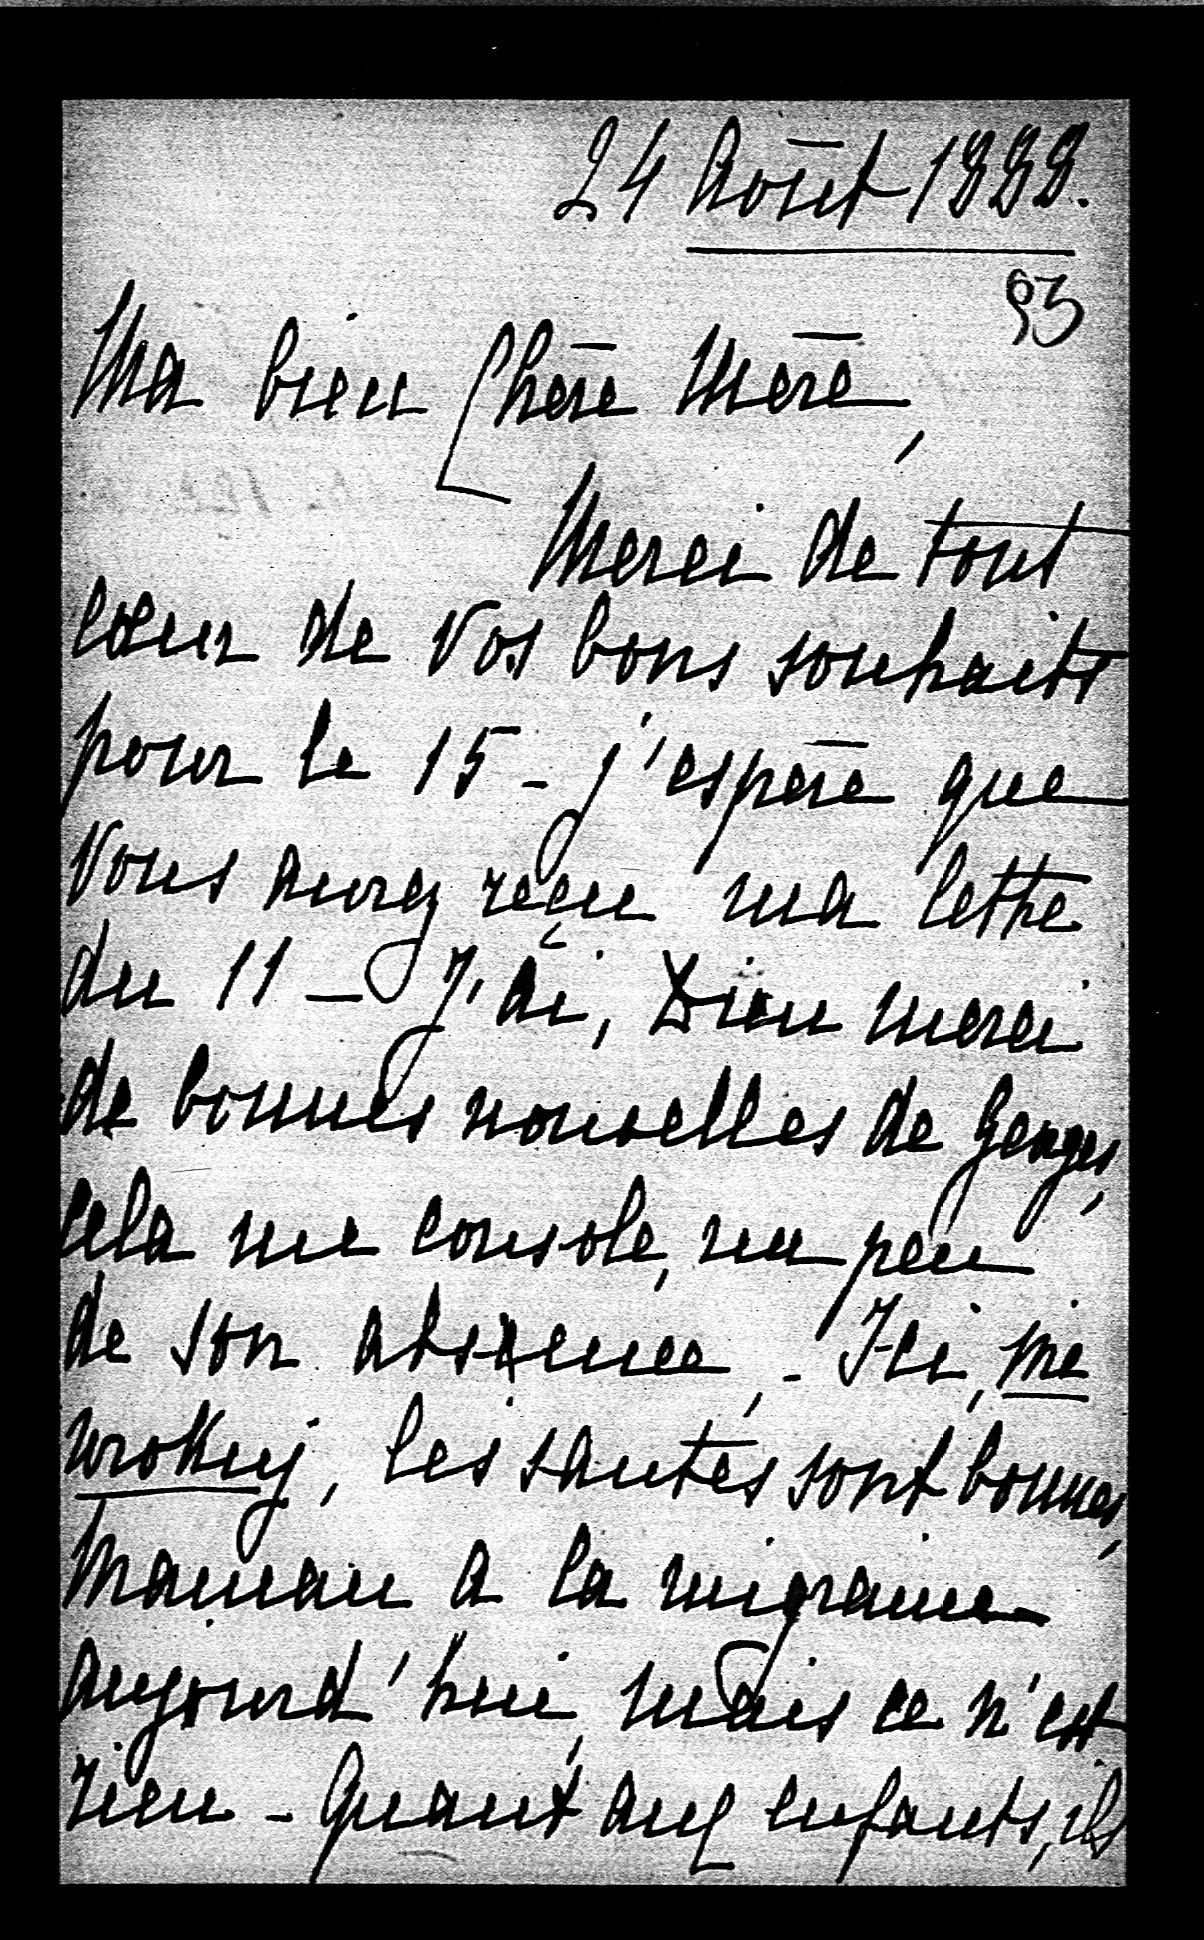 24 Août 1888.
93
Ma bien Chère Mère,
Merci de tout
cœur de Vos bons souhaits
pour le 15 - j'espère que
Vous aurez reçu ma lettre
du 11 - J'ai, Dieu merci
de bonnes nouvelles de Georges,
cela me console, un peu
de son absence, - Ici, nie
uroKuj, les santés sont bonnes,
Maman a la migraine
aujourd'hui, mais ce n'est
rien - Quant aux enfants, ils